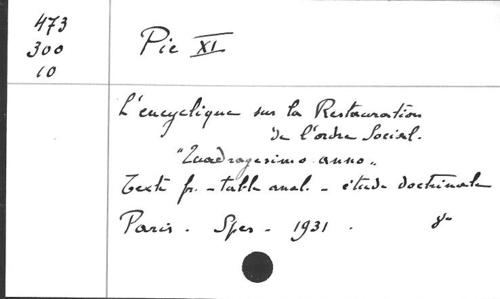 473
300
10
Pie XI
L'encyclique sur la Restauration
de l'ordre Social.
"Quadragesimo anno„
Texte fr. - table anal. - étude doctrinale
Paris. Spes - 1931. 8°